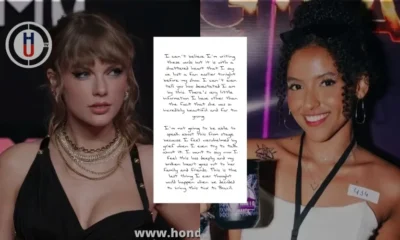 HU
I can't believe I'm writing
these words but it is with a
shattered heart that I say
we lost a fan earlier tonight
before my show. I can't even
tell you how devastated I am
by this. There is very little
information I have other than
the fact that she was so
incredibly beautiful and far too
young.
I'm not going to be able to
speak about this from stage
because I feel overwhelmed by
grief when I even try to talk
about it. I want to say now I
feel this loss deeply and my
broken heart goes out to her
family and friends. This is the
last thing I ever thought
would happen when we decided
to bring this tour to Brazil.
www.hond